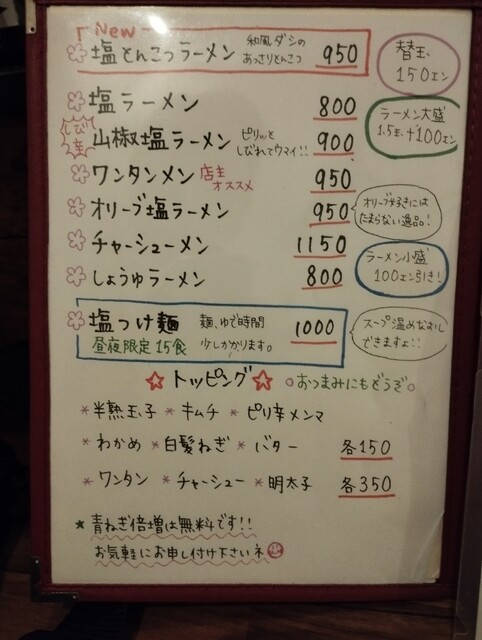 New
塩とんこつラーメン 和風ダシの あっさりとんこつ 950
替玉 150エン
塩ラーメン 800
ラーメン大盛 1.5玉 +100エン
しび辛 山椒塩ラーメン ピリッと しびれてウマイ!! 900
ワンタンメン 店主オススメ 950
オリーブ塩ラーメン 950
オリーブ好きには たまらない逸品!
チャーシューメン 1150
しょうゆラーメン 800
ラーメン小盛 100エン引き!
塩つけ麺 麺、ゆで時間 1000
昼夜限定15食 少しかかります。
スープ温めなおし できますよ!!
☆トッピング☆ ○おつまみにもどうぞ○
*半熟玉子 *キムチ *ピリ辛メンマ
*わかめ *白髪ねぎ *バター 各150
*ワンタン *チャーシュー *明太子 各350
★青ねぎ倍増は無料です!!
お気軽にお申し付け下さいネ